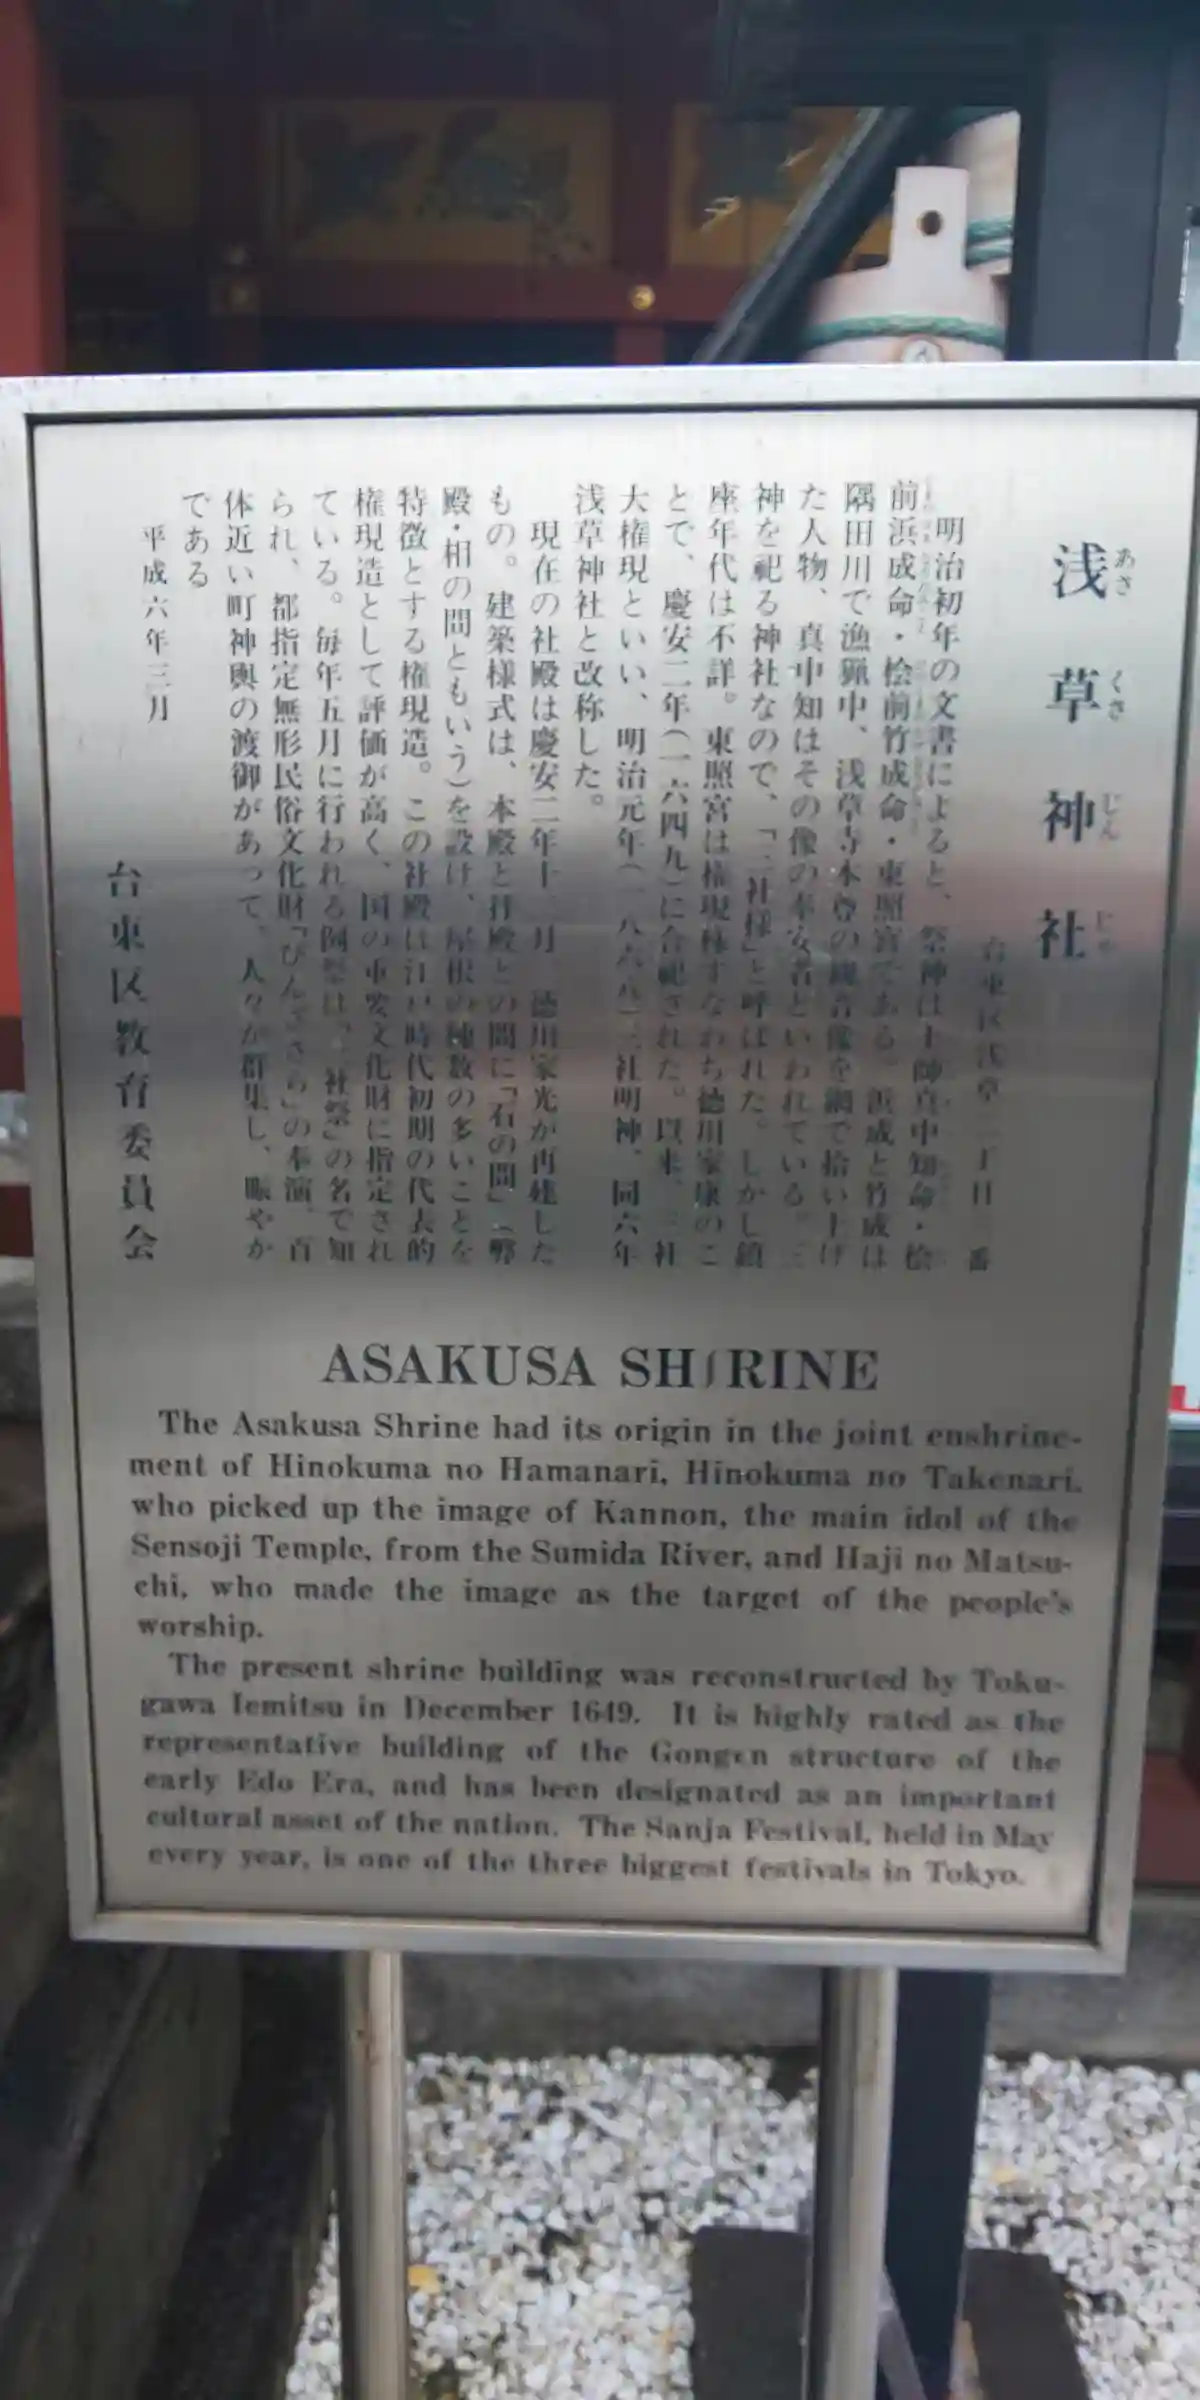 浅草神社
あさくさじんじゃ
台東区浅草二丁目三番
明治初年の文書によると、祭神は土師真中知命・桧
前浜成命・桧前竹成命・東照宮である。浜成と竹成は
隅田川で漁猟中、浅草寺本尊の観音像を網で拾い上げ
た人物、真中知はその像の奉安者といわれている。三
神を祀る神社なので、「三社様」と呼ばれた。しかし鎮
座年代は不詳。東照宮は権現様すなわち徳川家康のこ
とで、慶安二年(一六四九)に合祀された。以来、三社
大権現といい、明治元年(一八六八)三社明神、同六年
浅草神社と改称した。
現在の社殿は慶安二年十二月、徳川家光が再建した
もの。建築様式は、本殿と拝殿との間に「石の間」(弊
殿・相の間ともいう)を設け、屋根の棟数の多いことを
特徴とする権現造。この社殿は江戸時代初期の代表的
権現造として評価が高く、国の重要文化財に指定され
ている。毎年五月に行われる例祭は「三社祭」の名で知
られ、都指定無形民俗文化財「びんざさら」の奉演、百
体近い町神輿の渡御があって、人々が群集し、賑やか
である
平成六年三月
台東区教育委員会
ASAKUSA SHRINE
The Asakusa Shrine had its origin in the joint enshrine-
ment of Hinokuma no Hamanari, Hinokuma no Takenari,
who picked up the image of Kannon, the main idol of the
Sensoji Temple, from the Sumida River, and Haji no Matsu-
chi, who made the image as the target of the people's
worship.
The present shrine building was reconstructed by Toku-
gawa Iemitsu in December 1649. It is highly rated as the
representative building of the Gongen structure of the
early Edo Era, and has been designated as an important
cultural asset of the nation. The Sanja Festival, held in May
every year, is one of the three biggest festivals in Tokyo.